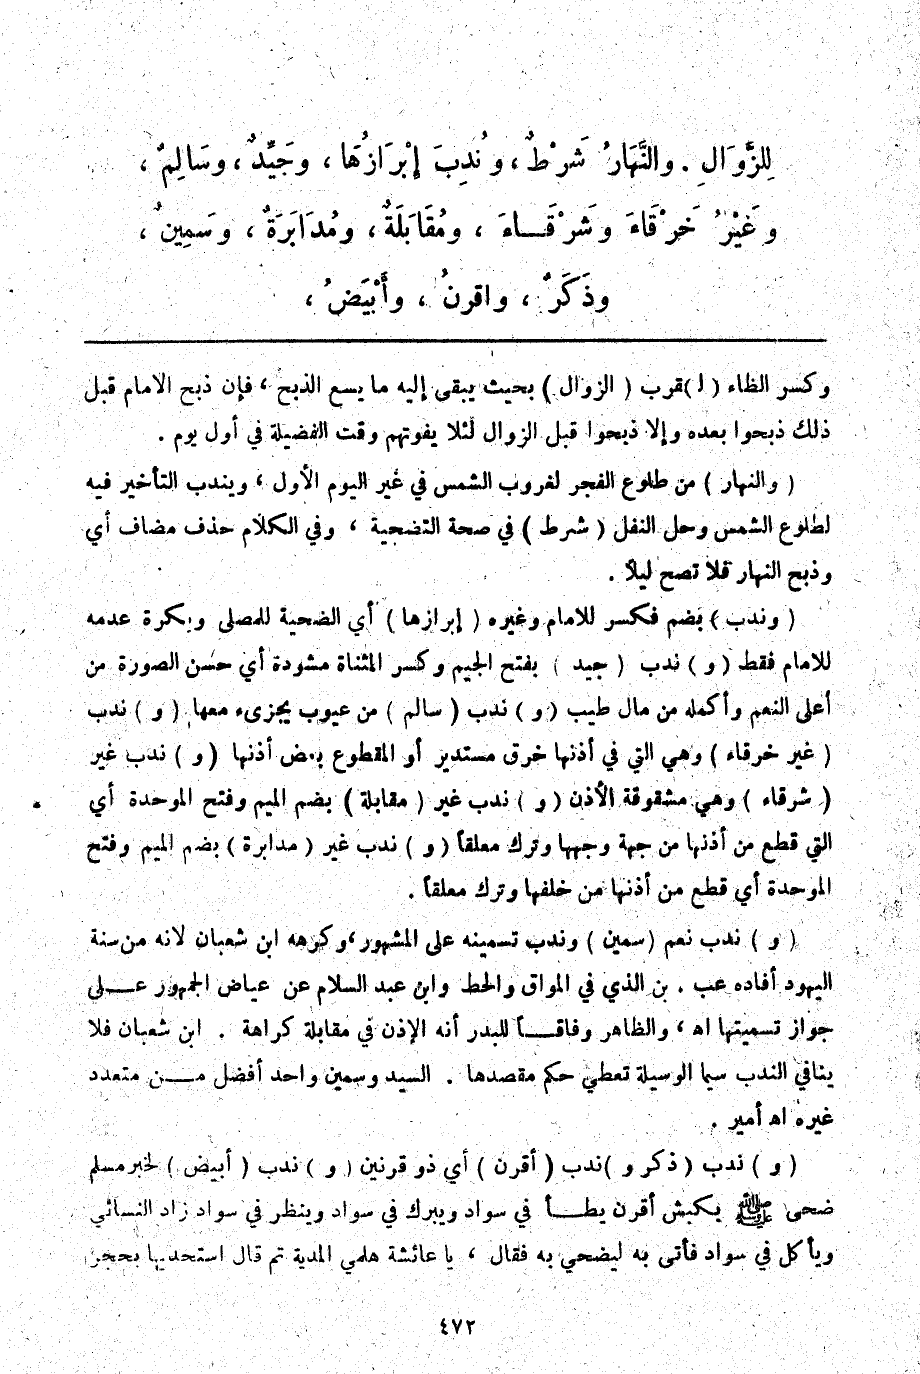 لِلزَّوَالِ . والنَّهَارُ شَرْطٌ ، ونُدِبَ إِبْرَازُهَا ، وجَيِّدٌ ، وسَالِمٌ ،
وغَيْرُ خَرْقَاءَ وشَرْقَـاءَ ، ومُقَابَلَةٌ ، ومُدَابَرَةٌ ، وسَمِينٌ ،
وذَكَرٌ ، واقرنُ ، وأَبْيَضُ ،
وكسر الظاء ( لـ )قرب ( الزوال ) بحيث يبقى إليه ما يسع الذبح ، فإن ذبح الامام قبل
ذلك ذبحوا بعده وإلا ذبحوا قبل الزوال لئلا يفوتهم وقت الفضيلة في أول يوم .
( والنهار ) من طلوع الفجر لغروب الشمس في غير اليوم الأول ، ويندب التأخير فيه
لطلوع الشمس وحل النفل ( شرط ) في صحة التضحية ، وفي الكلام حذف مضاف أي
وذبح النهار فلا تصح ليلاً .
( وندب ) بضم فكسر للامام وغيره ( إبرازها ) أي الضحية للمصلى ويكرة عدمه
للامام فقط ( و ) ندب ( جيد ) بفتح الجيم وكسر المثناة مشودة أي حسن الصورة من
أعلى النعم وأكمله من مال طيب ( و ) ندب ( سالم ) من عيوب يجزىء معها ( و ) ندب
( غير خرقاء ) وهي التي في أذنها خرق مستدير أو المقطوع بعض أذنها ( و ) ندب غير
( شرقاء ) وهي مشقوقة الأذن ( و ) ندب غير ( مقابلة ) بضم الميم وفتح الموحدة أي
التي قطع من أذنها من جهة وجهها وترك معلقاً ( و ) ندب غير ( مدابرة ) بضم الميم وفتح
الموحدة أي قطع من أذنها من خلفها وترك معلقاً .
( و ) ندب نعم ( سمين ) وندب تسمينه على المشهور ، وكرهه ابن شعبان لانه من سنة
اليهود أفاده عب . بن الذي في المواق والحط وابن عبد السلام عن عياض الجمهور عـلى
جواز تسميتها اه ، والظاهر وفاقـاً للبدر أنه الإذن في مقابلة كراهة . ابن شعبان فلا
ينافي الندب سيما الوسيلة تعطي حكم مقصدها . السيد وسمين واحد أفضل مـن متعدد
غيره اه أمير .
( و ) ندب ( ذكر و )ندب ( أقرن ) أي ذو قرنين ( و ) ندب ( أبيض ) لخبر مسلم
ضحى ﷺ بكبش أقرن يطـأ في سواد ويبرك في سواد وينظر في سواد زاد النسائي
ويأكل في سواد فأتى به ليضحي به فقال ، يا عائشة هلمي المدية ثم قال استحديها بحجر
٤٧٢